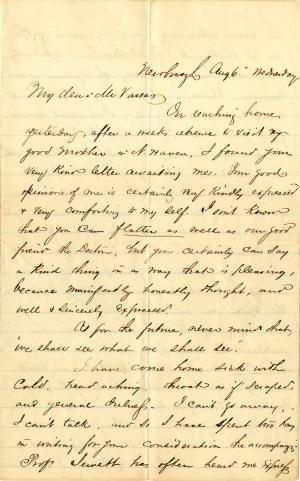 Newburgh Aug 6th Wednesday
My dear Mr Vassar
On reaching home
yesterday, after a week's absence to visit my
good Mother in N. Haven, I found your
very kind letter awaiting me. Your good
opinion of me is certainly very kindly expressed
& very comforting to my self. I don't know
that you can flatter as well as our good
friend the Doctor, but you certainly can say
a kind thing in a way that is pleasing,
because manifestly honestly thought, and
well & sincerely expressed.
As for the future, never mind that,
"we shall see what we shall see."
I have come home sick with
Cold, head aching throat as if scraped,
and general dulness. I can't go away,
I can't talk, and so I have spent this day
in writing for your consideration the accompanying
Prof. Jewett has often heard me express